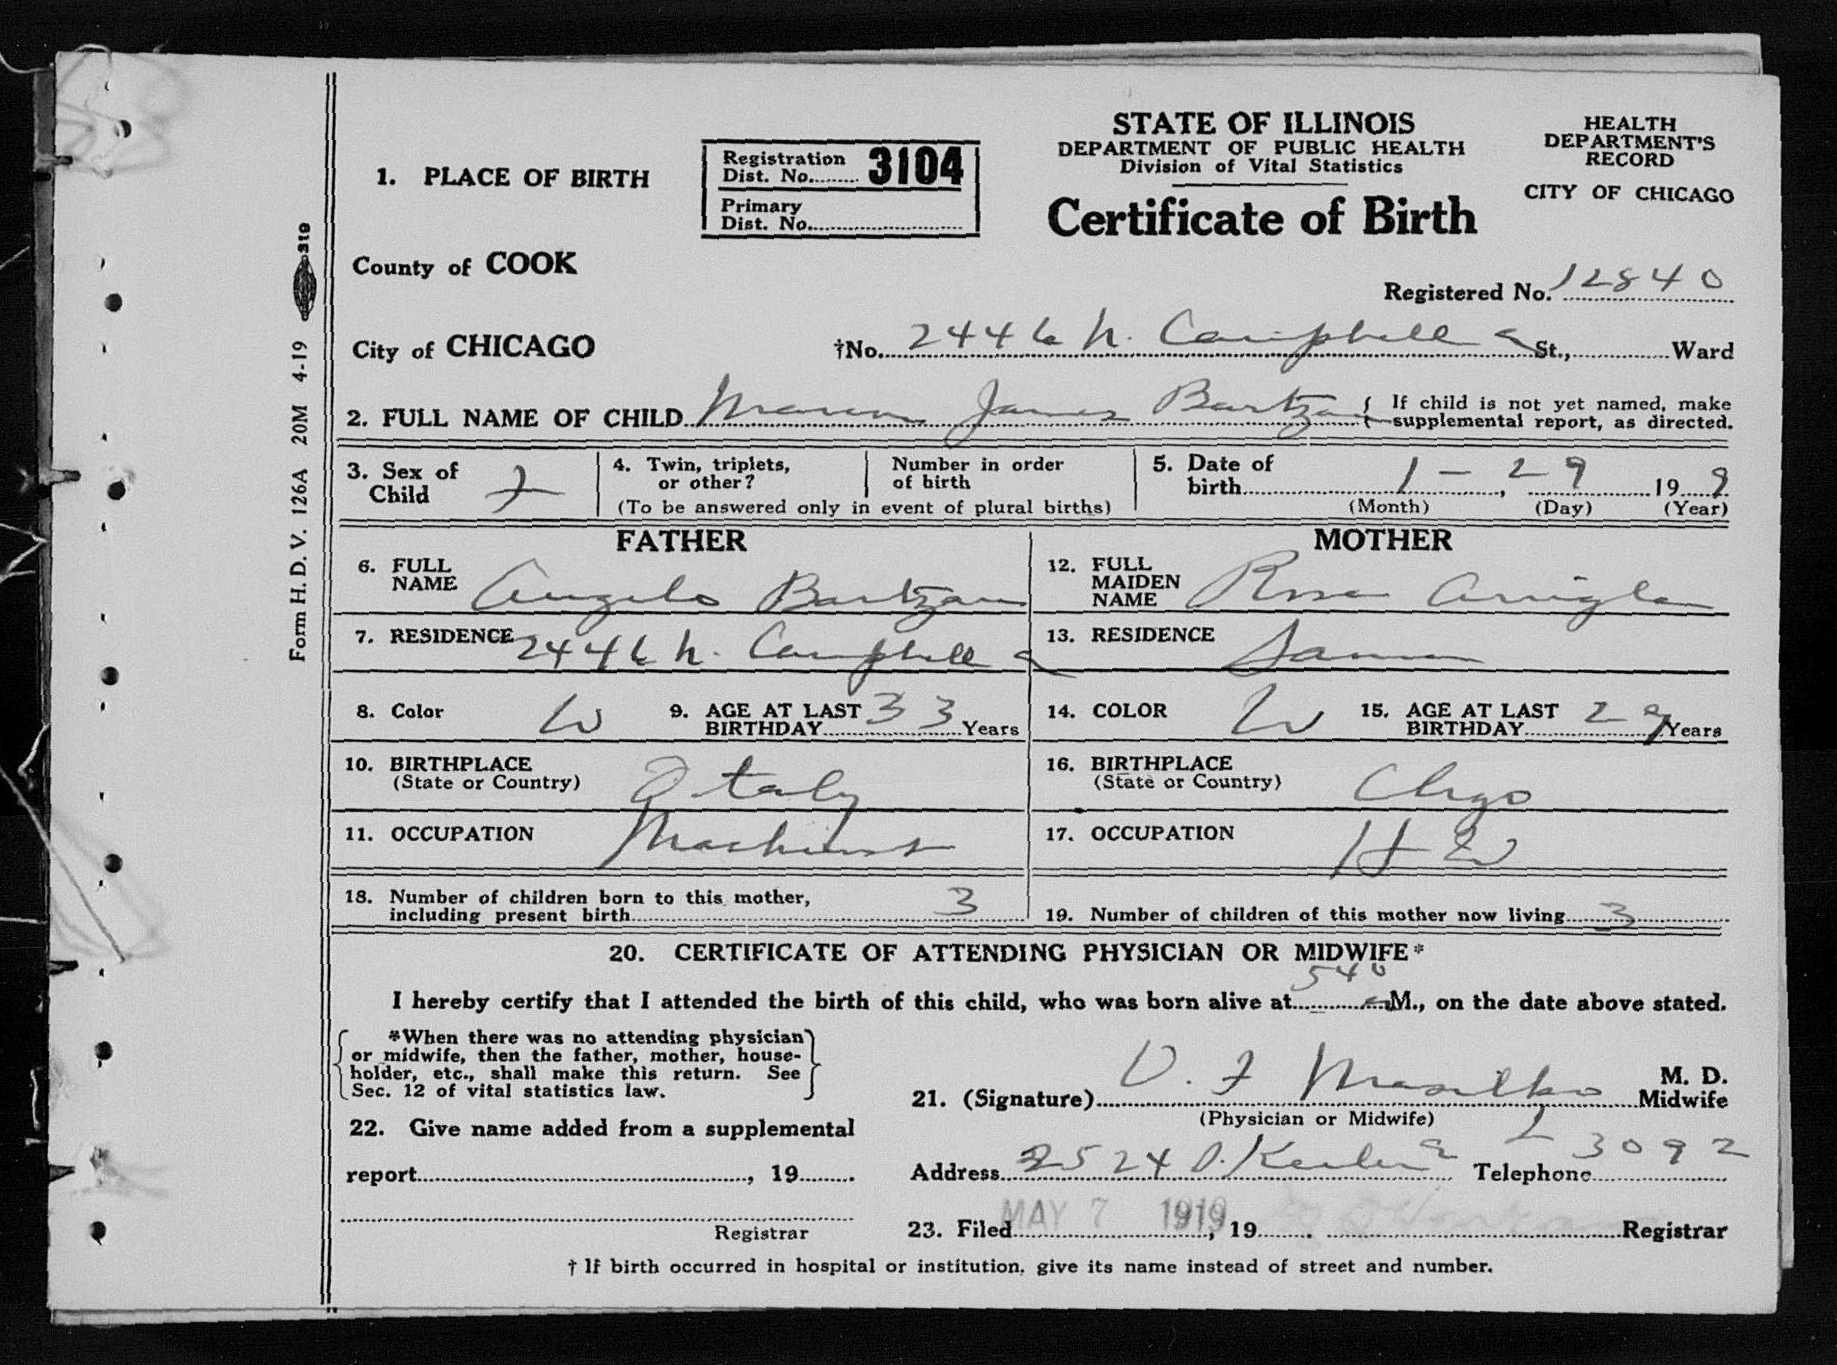 STATE OF ILLINOIS
DEPARTMENT OF PUBLIC HEALTH
Division of Vital Statistics
Certificate of Birth
HEALTH
DEPARTMENT'S
RECORD
CITY OF CHICAGO
1. PLACE OF BIRTH
Registration
Dist. No. 3104
Primary
Dist. No.
County of COOK
Registered No. 12840
City of CHICAGO †No. 2446 N. Campbell a St., Ward
2. FULL NAME OF CHILD James Bartzan { If child is not yet named, make
supplemental report, as directed.
3. Sex of
Child F
4. Twin, triplets,
or other?
Number in order
of birth
(To be answered only in event of plural births)
5. Date of
birth 1 - 29, 19 9
(Month) (Day) (Year)
FATHER
6. FULL
NAME Angelo Bartzan
7. RESIDENCE 2446 N. Campbell a
8. Color W 9. AGE AT LAST
BIRTHDAY 33 Years
10. BIRTHPLACE
(State or Country) Italy
11. OCCUPATION Machinist
MOTHER
12. FULL
MAIDEN
NAME Rose
13. RESIDENCE Same
14. COLOR W 15. AGE AT LAST
BIRTHDAY 29 Years
16. BIRTHPLACE
(State or Country) Chgo
17. OCCUPATION H W
18. Number of children born to this mother,
including present birth 3
19. Number of children of this mother now living 3
20. CERTIFICATE OF ATTENDING PHYSICIAN OR MIDWIFE*
I hereby certify that I attended the birth of this child, who was born alive at 540 a M., on the date above stated.
*When there was no attending physician
or midwife, then the father, mother, house-
holder, etc., shall make this return. See
Sec. 12 of vital statistics law.
21. (Signature) M. D.
Midwife
(Physician or Midwife)
22. Give name added from a supplemental
report, 19
Registrar
Address 2524 Telephone L 3092
23. Filed MAY 7 1919, 19 Registrar
† If birth occurred in hospital or institution, give its name instead of street and number.
Form H. D. V. 126A 20M 4-19 319